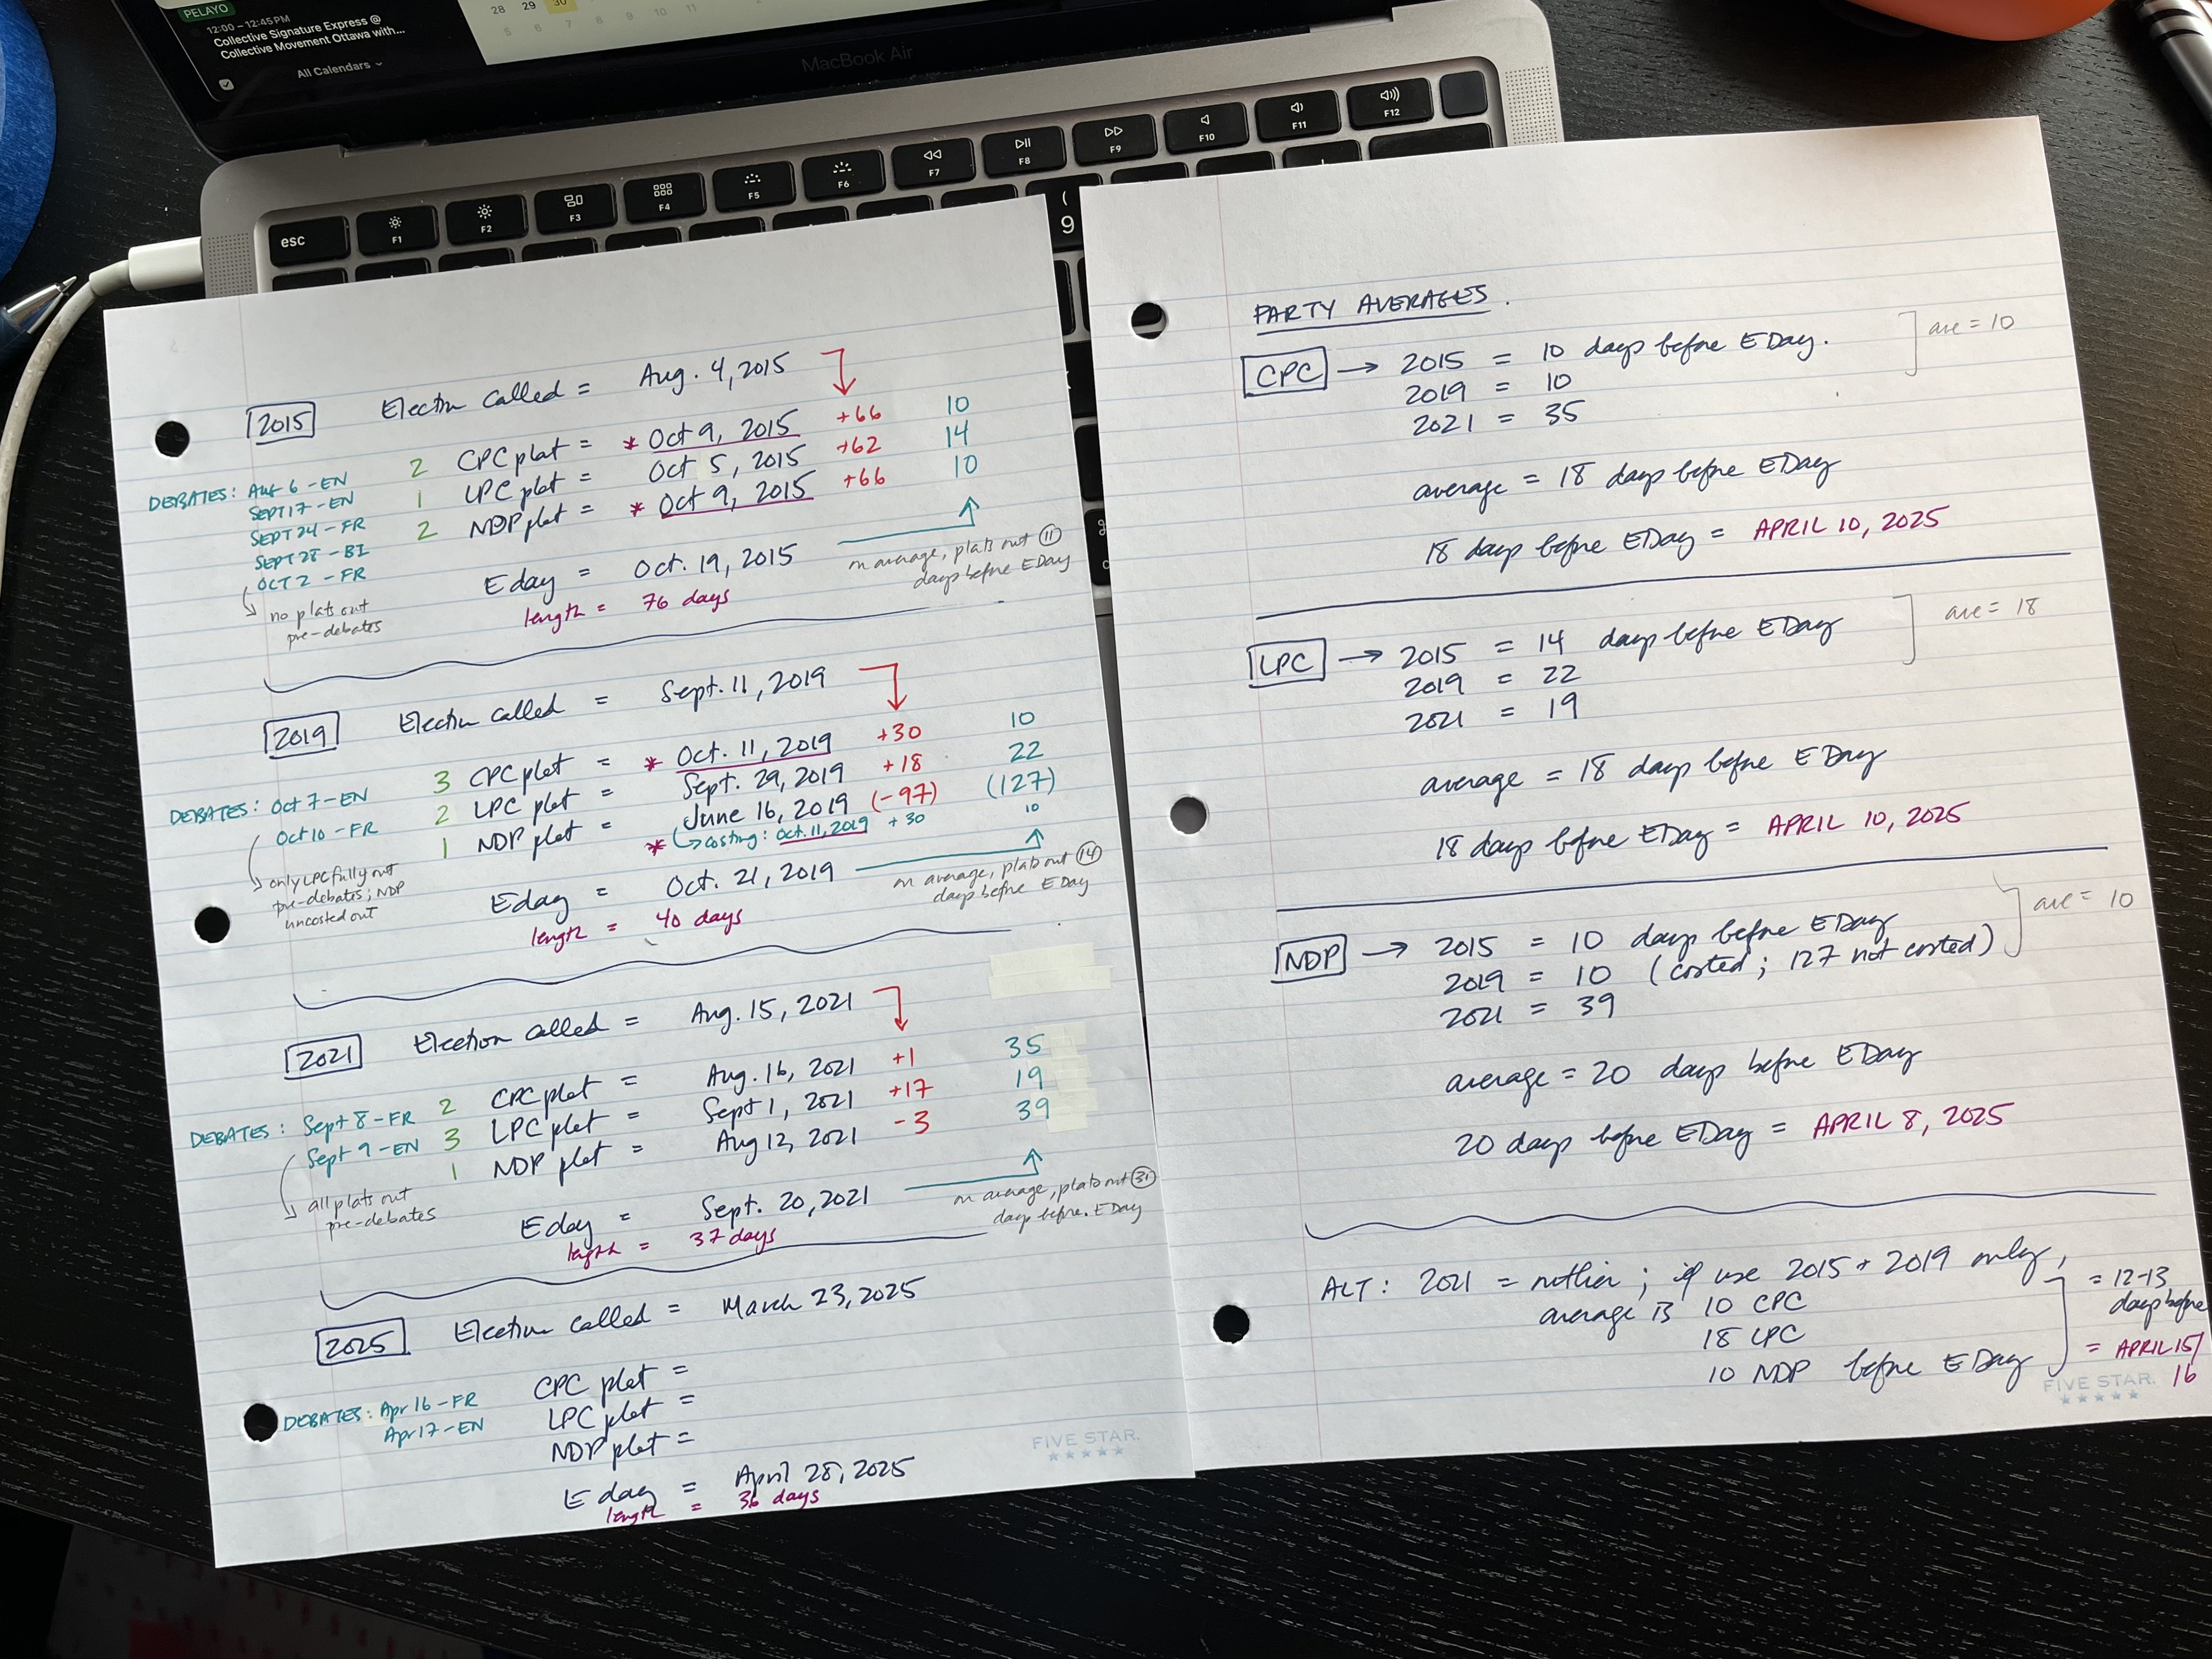 PELAYO
12:00 – 12:45 PM
Collective Signature Express @
Collective Movement Ottawa with...
All Calendars
28 29 30
5 6 7 8 9 10 11
MacBook Air
esc F1 F2 F3 F4 F5 F6 F7 F8 F9 F10 F11 F12
(
9
2015 Election called = Aug. 4, 2015
2 CPC plat = * Oct 9, 2015 +66 10
1 LPC plat = Oct 5, 2015 +62 14
2 NDP plat = * Oct 9, 2015 +66 10
DEBATES: Aug 6 - EN
SEPT 17 - EN
SEPT 24 - FR
SEPT 28 - BI
OCT 2 - FR
no plats out
pre-debates
Eday = Oct. 19, 2015
length = 76 days
on average, plats out 11
days before EDay
2019 Election called = Sept. 11, 2019
3 CPC plat = * Oct. 11, 2019 +30 10
2 LPC plat = Sept. 29, 2019 +18 22
1 NDP plat = June 16, 2019 (-97) (127)
* costing: Oct. 11, 2019 +30 10
DEBATES: Oct 7 - EN
Oct 10 - FR
only LPC fully out
pre-debates; NDP
uncosted out
Eday = Oct. 21, 2019
length = 40 days
on average, plats out 14
days before EDay
2021 Election called = Aug. 15, 2021
2 CPC plat = Aug. 16, 2021 +1 35
3 LPC plat = Sept 1, 2021 +17 19
1 NDP plat = Aug 12, 2021 -3 39
DEBATES: Sept 8 - FR
Sept 9 - EN
all plats out
pre-debates
Eday = Sept. 20, 2021
length = 37 days
on average, plats out 31
days before EDay
2025 Election called = March 23, 2025
CPC plat =
LPC plat =
NDP plat =
DEBATES: Apr 16 - FR
Apr 17 - EN
Eday = April 28, 2025
length = 36 days
FIVE STAR.
PARTY AVERAGES.
CPC → 2015 = 10 days before EDay.
2019 = 10
2021 = 35
ave = 10
average = 18 days before EDay
18 days before EDay = APRIL 10, 2025
LPC → 2015 = 14 days before EDay
2019 = 22
2021 = 19
ave = 18
average = 18 days before EDay
18 days before EDay = APRIL 10, 2025
NDP → 2015 = 10 days before EDay
2019 = 10 (costed; 127 not costed)
2021 = 39
ave = 10
average = 20 days before EDay
20 days before EDay = APRIL 8, 2025
ALT: 2021 = outlier; if use 2015 + 2019 only,
average is 10 CPC
18 LPC
10 NDP before EDay
= 12-13
days before
= APRIL 15/
16
FIVE STAR.